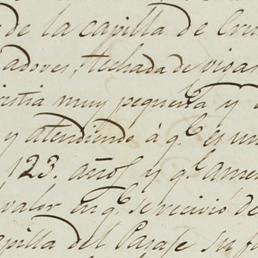 de la capilla de Cru
adores, techada de visar
ristia muy pequeña y
y atendiendo á q.e es un
123. años y q.e ame
valor en q.e se recivió de
apilla del Pasaje su f